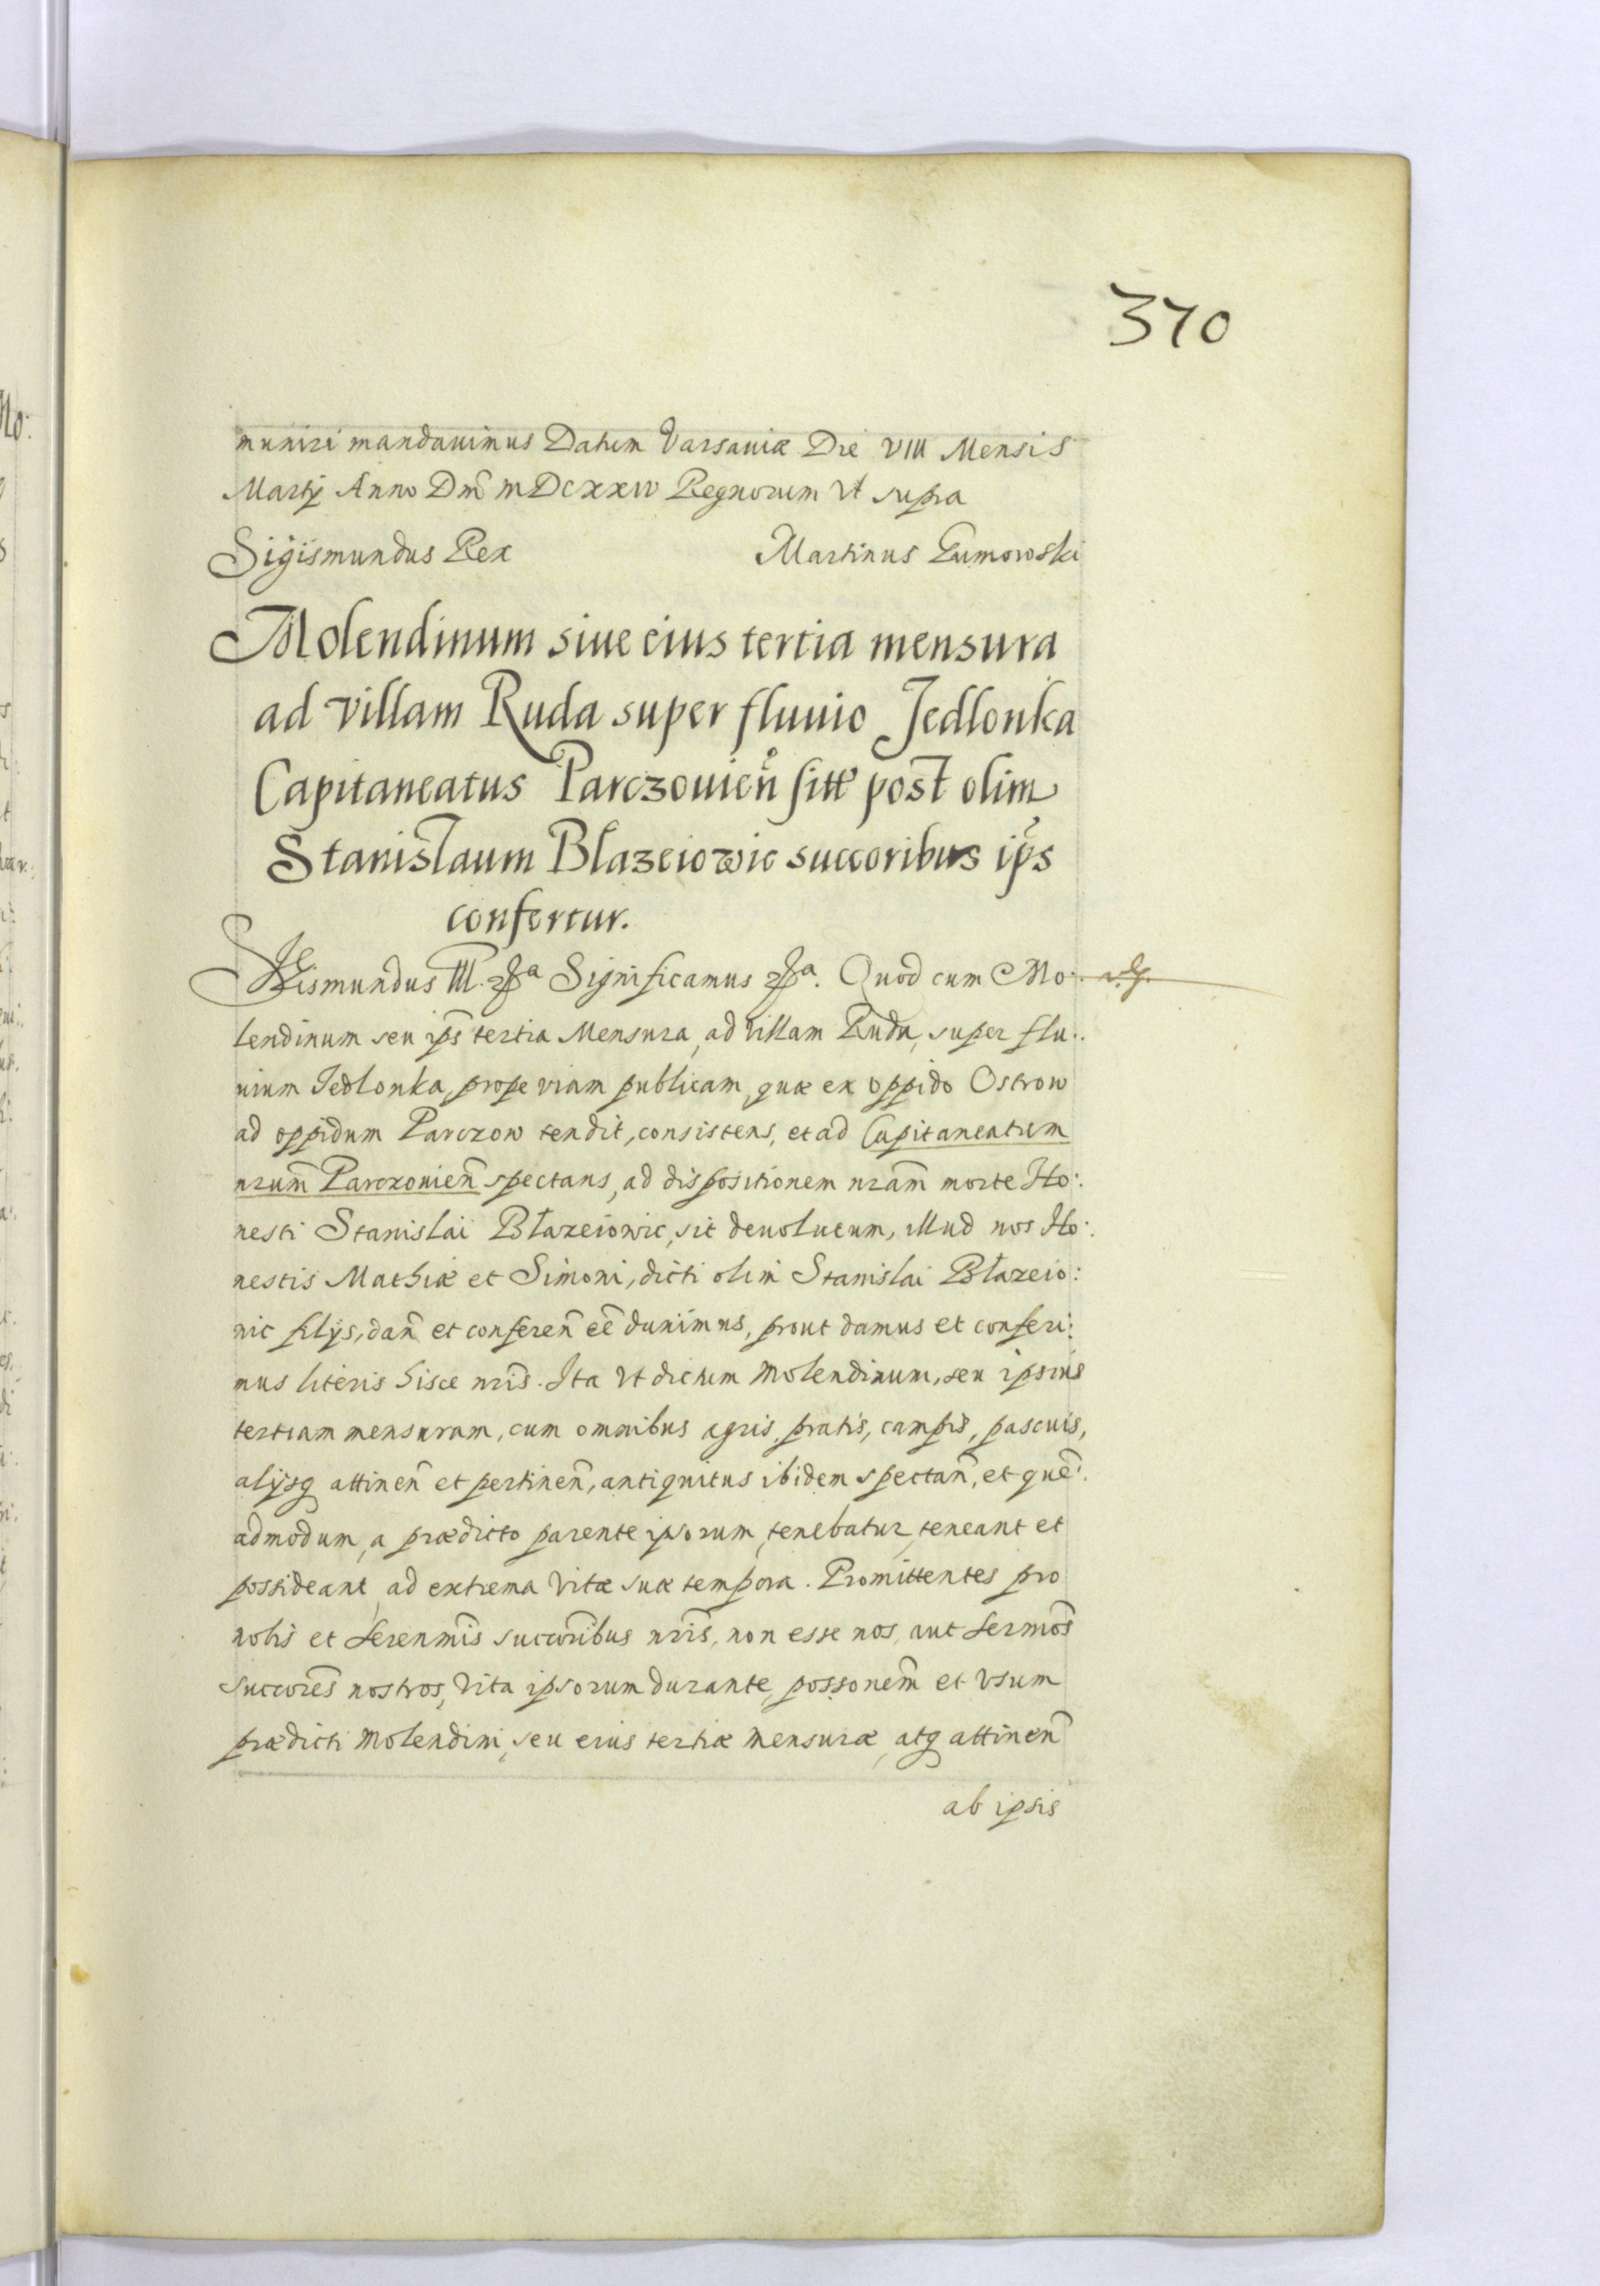 370
muniri mandauimus Datum Varsauiæ Die VIII Mensis
Martÿ Anno Dnĩ MDCXXIV Regnorum Vt supra
Sigismundus Rex Martinus Łumowski
Molendinum siue eius tertia mensura
ad villam Ruda super fluuio Jedlonka
Capitaneatus Parczouień sitt post olim
Stanislaum Blazeiowic succoribus ips
confertur.
Sigismundus III. Significamus Quod cum Mo:
lendinum seu ips̃ tertia Mensura, ad villam Ruda, super flu:
uium Jedlonka, prope viam publicam, quæ ex oppido Ostrow
ad oppidum Parczow tendit, consistens, et ad Capitaneatum
nrum̃ Parczouien̄ spectans, ad dispositionem nram̃ morte Ho:
nesti Stanislai Błazeiowic, sit deuolutum, illud nos Ho:
nestis Mathiæ et Simoni, dicti olim Stanislai Błazeio:
wic filÿs, dan̄ et conferen̄ eẽ duximus, prout damus et conferi:
mus literis hisce nris̃. Ita Vt dictum Molendinum, seu ipsius
tertiam mensuram, cum omnibus agris, pratis, campis, pascuis,
alÿsq attinen̄ et pertinen̄, antiquitus ibidem spectan̄, et quẽ:
admodum, a prædicto parente ipsorum, tenebatur, teneant et
possideant, ad extrema Vitæ suæ tempora. Promittentes pro
nobis et Serenmis̃ succorĩbus nris̃, non esse nos, aut Sermos̃
succorẽs nostros, Vita ipsorum durante, possonem̃ et Vsum
prædicti Molendini, seu eius tertiæ mensuræ, atq attinen̄
ab ipsis